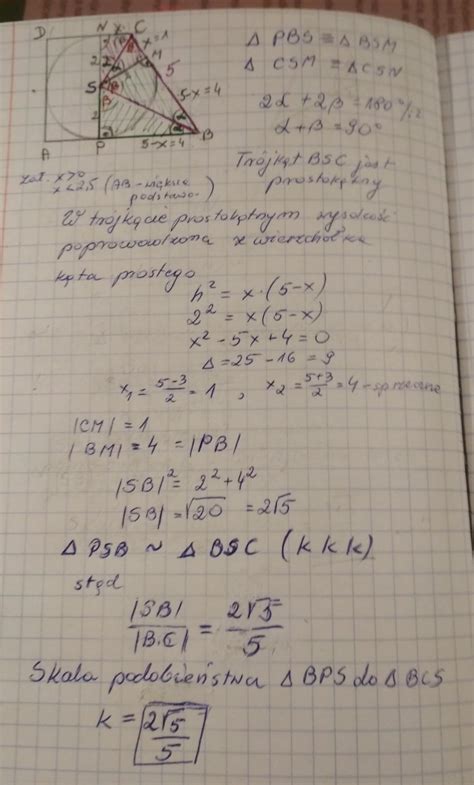 D N x C
x=1
M
2
5
S
5-x=4
2
A P 5-x=4 B
Δ PBS ≡ Δ BSM
Δ CSM ≡ Δ CSN
2α + 2β = 180° /:2
α+β = 90°
Trójkąt BSC jest
prostokątny
zał. x>0
x<2,5 (AB - większa
podstawa)
W trójkącie prostokątnym wysokość
poprowadzona z wierzchołka
kąta prostego
h² = x·(5-x)
2² = x(5-x)
x² - 5x + 4 = 0
Δ = 25 - 16 = 9
x₁ = (5-3)/2 = 1 , x₂ = (5+3)/2 = 4 - sprzeczne
|CM| = 1
|BM| = 4 = |PB|
|SB|² = 2² + 4²
|SB| = √20 = 2√5
Δ PSB ~ Δ BSC (k k k)
stąd
|SB| / |BC| = 2√5 / 5
Skala podobieństwa Δ BPS do Δ BCS
k = 2√5 / 5